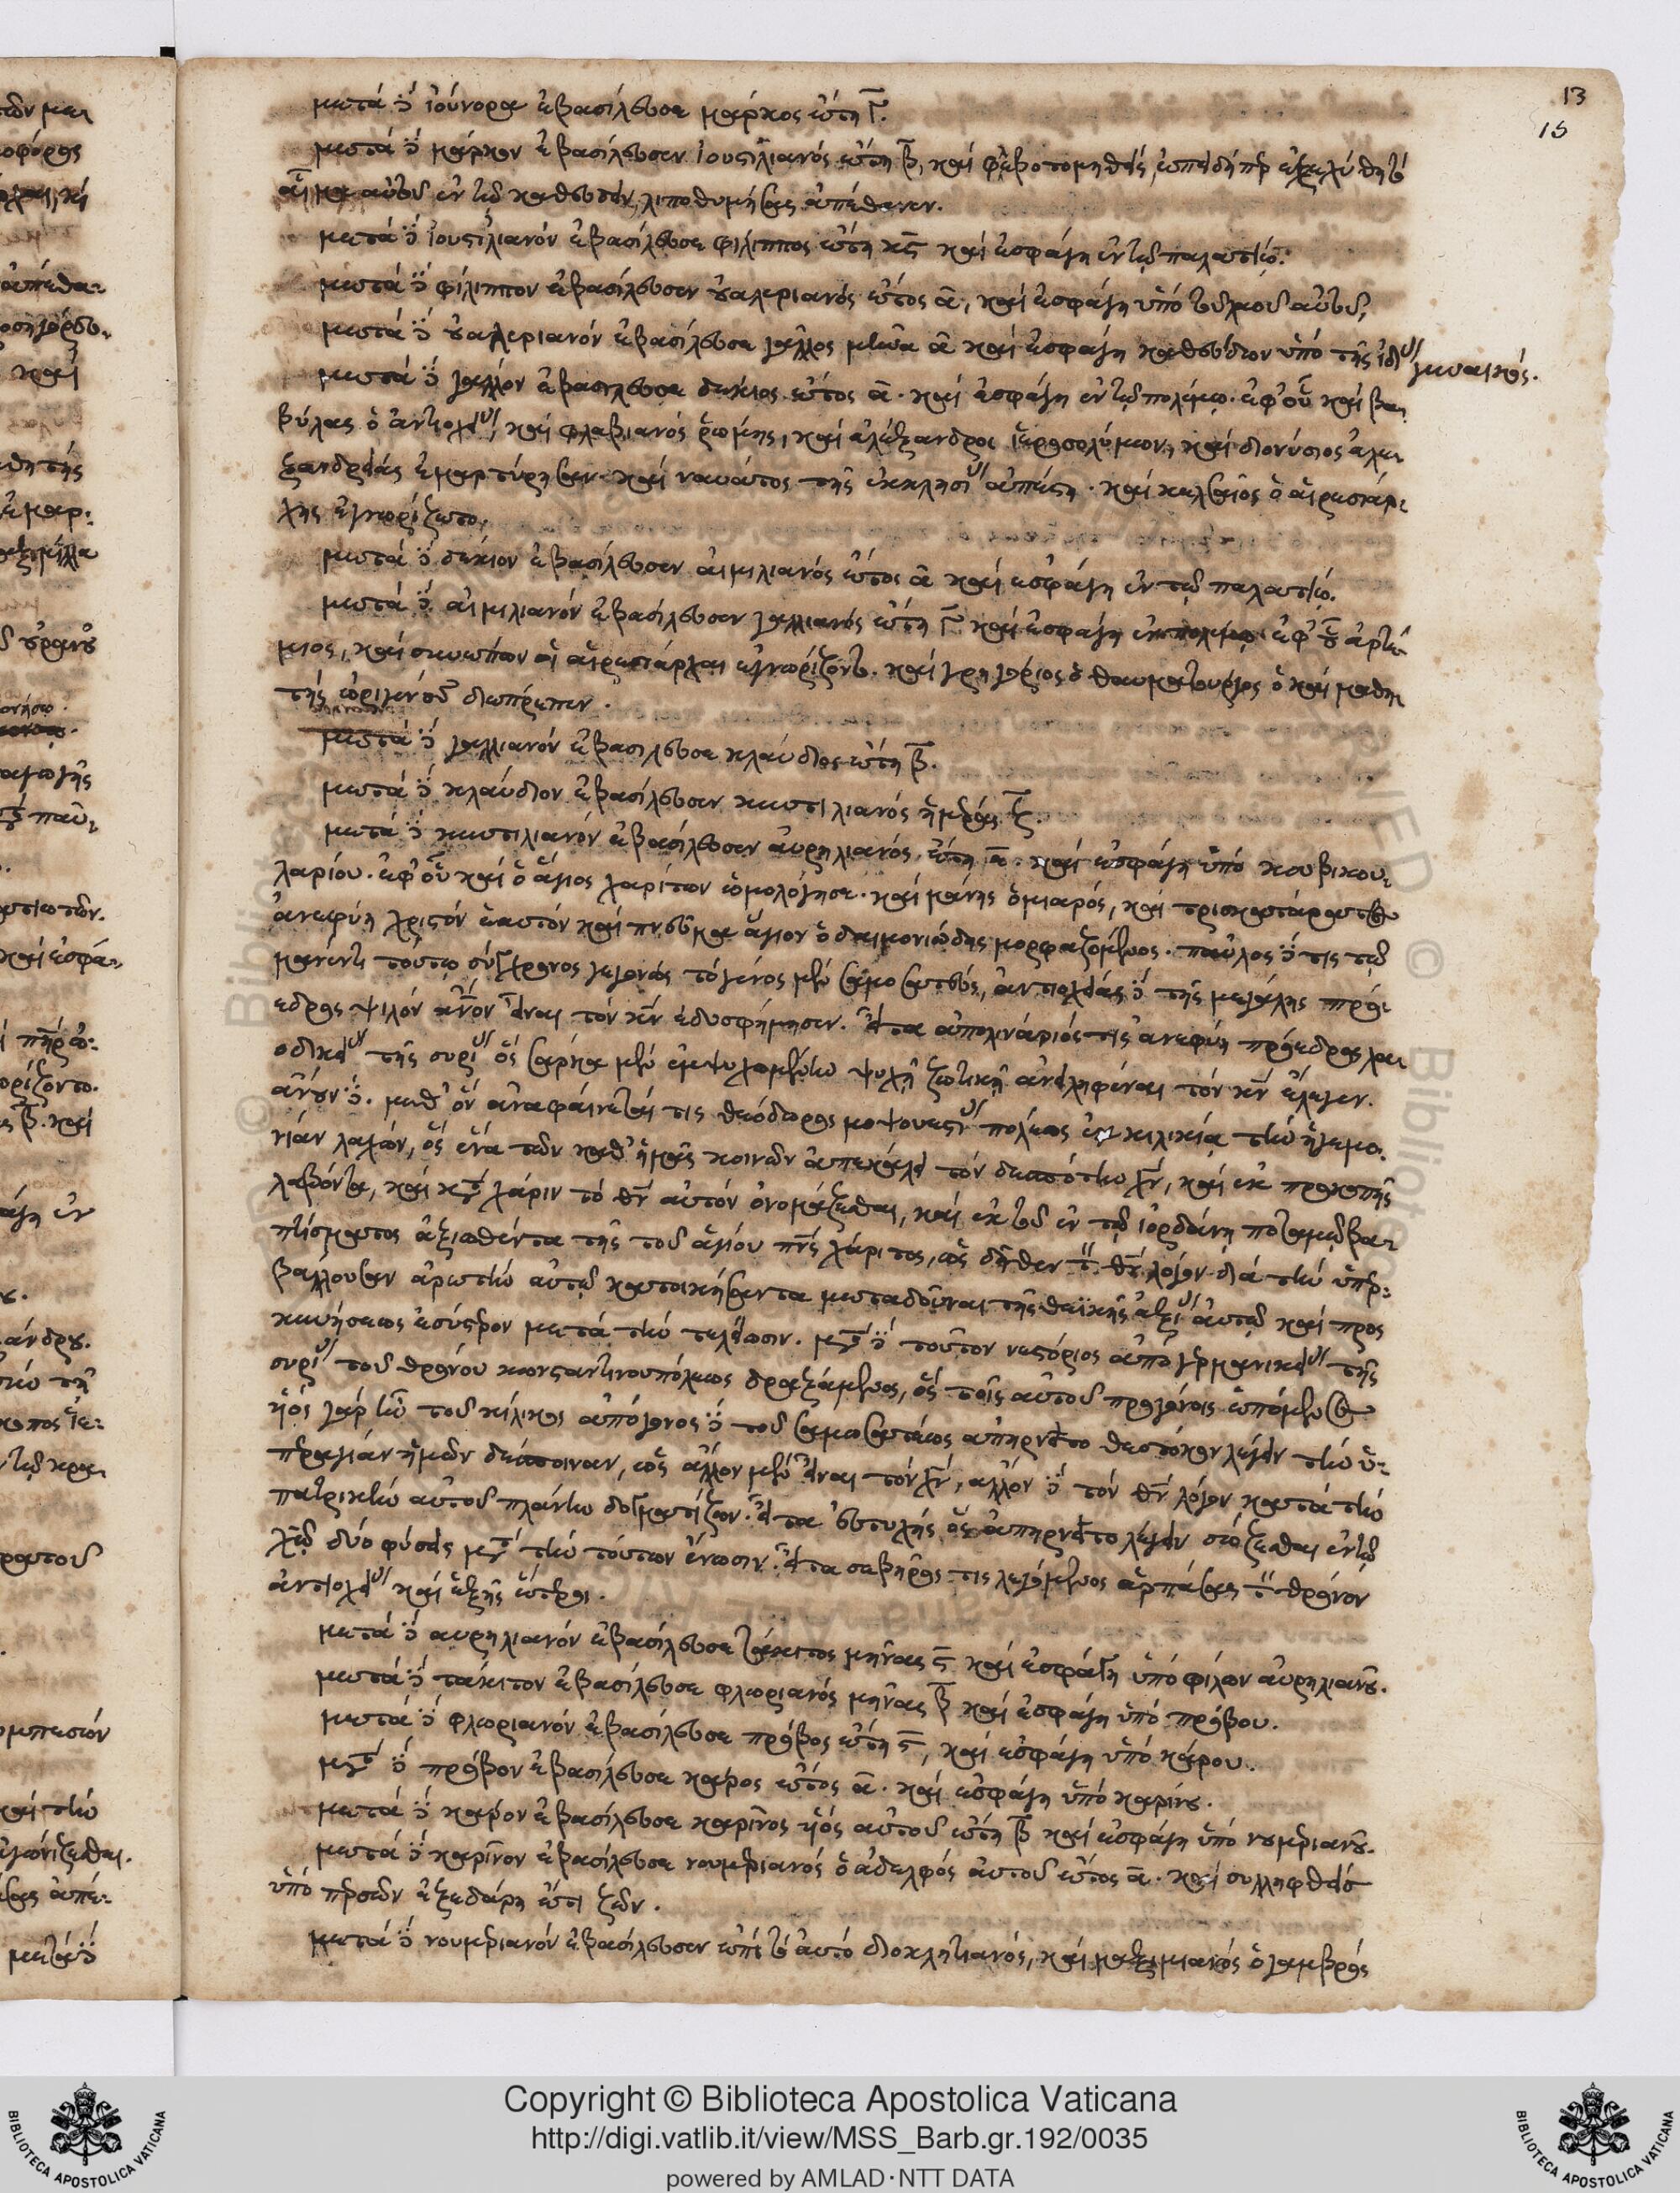 13
15
μετὰ δὲ ἰούνορα ἐβασίλευσε μάρκος ἔτη γ.
μετὰ δὲ μάρκον ἐβασίλευσεν ἰουστιλιανός ἔτη β, καὶ φλεβοτομηθείς, ἐπειδήπερ ἐξεχύθη τὸ
αἷμα αὐτοῦ ἐν τῷ καθεύδειν, λιποθυμήσας ἀπέθανεν.
μετὰ δὲ ἰουστιλιανόν ἐβασίλευσε φίλιππος ἔτη κϛ καὶ ἐσφάγη ἐν τῷ παλατίῳ.
μετὰ δὲ φίλιππον ἐβασίλευσεν οὐαλεριανός ἔτος α, καὶ ἐσφάγη ὑπὸ τοῦ λαοῦ αὐτοῦ,
μετὰ δὲ οὐαλλεριανόν ἐβασίλευσε γάλλος μῆνα α καὶ ἐσφάγη καθεύδων ὑπὸ τῆς ἰδίας γυναικός.
μετὰ δὲ γάλλον ἐβασίλευσε δέκιος ἔτος α. καὶ ἐσφάγη ἐν τῷ πολέμῳ. ἐφ' οὗ καὶ βα
βύλας ὁ ἀντιοχείας, καὶ φλαβιανός ῥώμης, καὶ ἀλέξανδρος ἱεροσολύμων, καὶ διονύσιος ἀλε
ξανδρείας ἐμαρτύρησαν. καὶ ναυάτος τῆς ἐκκλησίας ἀπέστη. καὶ κελσαῖος ὁ αἱρεσιάρ
χης ἐγνωρίζετο.
μετὰ δὲ δέκιον ἐβασίλευσεν αἰμιλιανός ἔτος α καὶ ἐσφάγη ἐν τῷ παλατίῳ.
μετὰ δὲ αἰμιλιανόν ἐβασίλευσεν γαλλιανός ἔτη γ καὶ ἐσφάγη ἐν πολέμῳ. ἐφ' οὗ ἀρτέ
μιος, καὶ σκυωπῶν οἱ αἱρεσιάρχαι ἐγνωρίζοντο. καὶ γρηγόριος ὁ θαυματουργός ὁ καὶ μαθη
τής ὠριγένους διέπρεπεν.
μετὰ δὲ γαλλιανόν ἐβασίλευσε κλαύδιος ἔτη β.
μετὰ δὲ κλαύδιον ἐβασίλευσεν κυντιλιανός ἡμέρας ιζ.
μετὰ δὲ κυντιλιανόν ἐβασίλευσεν αὐρηλιανός, ἔτη α. καὶ ἐσφάγη ὑπὸ κουβικου
λαρίου. ἐφ' οὗ καὶ ὁ ἅγιος χαρίτων ὡμολόγησε. καὶ μάνης ὁ μιαρός, καὶ τρισκατάρατος
ἀνεφύη χριστόν ἑαυτόν καὶ πνεῦμα ἅγιον ὁ δαιμονιώδης μορφαζόμενος. παῦλος δέ τις τῷ
μανέντι τούτῳ σύγχρονος γεγονώς τὸ γένος μὲν σαμοσατεύς, ἀντιοχείας δὲ τῆς μεγάλης πρό
εδρος ψιλόν ἄνον εἶναι τὸν κν ἐδυσφήμησεν. εἶτα ἀπολινάριός τις ἀνεφύη πρόεδρος λα
οδικείας τῆς συρίας ὅς σάρκα μὲν ἐμψυχωμένην ψυχῇ ζωτικῇ ἀνειληφέναι τὸν κν ἔλεγεν.
ἄνουν δὲ. μεθ' ὃν ἀναφαίνεταί τις θεόδωρος μοψουεστίας πόλεως ἐν κιλικίᾳ τὴν ἡγεμο
νίαν λαχών, ὅς ἕνα τῶν καθ' ἡμᾶς κοινῶν ἀπεκάλει τὸν δεσπότην χν, καὶ ἐκ προκοπῆς
λαβόντα, καὶ κατὰ χάριν τὸ θν αὐτὸν ὀνομάζεσθαι, καὶ ἐκ τοῦ ἐν τῷ ἰορδάνῃ ποταμῷ βα
πτίσματος ἀξιωθέντα τῆς τοῦ ἁγίου πνς χάριτος, ὡς δῆθεν τοῦ θυ λόγου διὰ τὴν ὑπερ
βάλλουσαν ἀρετὴν αὐτῷ κατοικήσαντα μεταδοῦναι τῆς θεϊκῆς ἀξίας αὐτῷ καὶ προσ
κυνήσεως ἐσύστερον μετὰ τὴν τελείωσιν. μετὰ δὲ τοῦτον νεστόριος ἀπὸ γερμανικείας τῆς
συρίας τοῦ θρόνου κωνσταντινουπόλεως δραξάμενος, ὅς τοῖς αὐτοῦ προγόνοις ἑπόμενος
υἱός γὰρ ἦν τοῦ κίλικος ἀπόγονος δὲ τοῦ σαμοσατέως ἀπηρνεῖτο θεοτόκον λέγειν τὴν ὑ
περαγίαν ἡμῶν δέσποιναν, ὡς ἄλλον μὲν εἶναι τὸν χν, ἄλλον δὲ τὸν θν λόγον κατὰ τὴν
πατρικὴν αὐτοῦ πλάνην δογματίζων. εἶτα εὐτυχής ὅς ἀπηρνεῖτο λέγειν σώζεσθαι ἐν τῷ
χῷ δύο φύσεις μετὰ τὴν τούτων ἕνωσιν. εἶτα σεβῆρος τις λεγόμενος ἁρπάσας τὸν θρόνον
ἀντιοχείας καὶ ἑξῆς ἕτεροι.
μετὰ δὲ αὐρηλιανόν ἐβασίλευσε τάκιτος μῆνας ϛ καὶ ἐσφάγη ὑπὸ φίλων αὐρηλιανοῦ.
μετὰ δὲ τάκιτον ἐβασίλευσε φλωριανός μῆνας β καὶ ἐσφάγη ὑπὸ πρόβου.
μετὰ δὲ φλωριανόν ἐβασίλευσε πρόβος ἔτη ϛ, καὶ ἐσφάγη ὑπὸ κάρου.
μετὰ δὲ πρόβον ἐβασίλευσε κάρος ἔτος α. καὶ ἐσφάγη ὑπὸ καρίνου.
μετὰ δὲ κάρον ἐβασίλευσε καρῖνος υἱός αὐτοῦ ἔτη β καὶ ἐσφάγη ὑπὸ νουμεριανοῦ.
μετὰ δὲ καρῖνον ἐβασίλευσε νουμεριανός ὁ ἀδελφός αὐτοῦ ἔτος α. καὶ συλληφθείς
ὑπὸ περσῶν ἐξεδάρη ἔτι ζῶν.
μετὰ δὲ νουμεριανόν ἐβασίλευσεν ἐπὶ τὸ αὐτὸ διοκλητιανός, καὶ μαξιμιανός ὁ γαμβρός
Copyright © Biblioteca Apostolica Vaticana
http://digi.vatlib.it/view/MSS_Barb.gr.192/0035
powered by AMLAD·NTT DATA
BIBLIOTECA APOSTOLICA VATICANA
BIBLIOTECA APOSTOLICA VATICANA